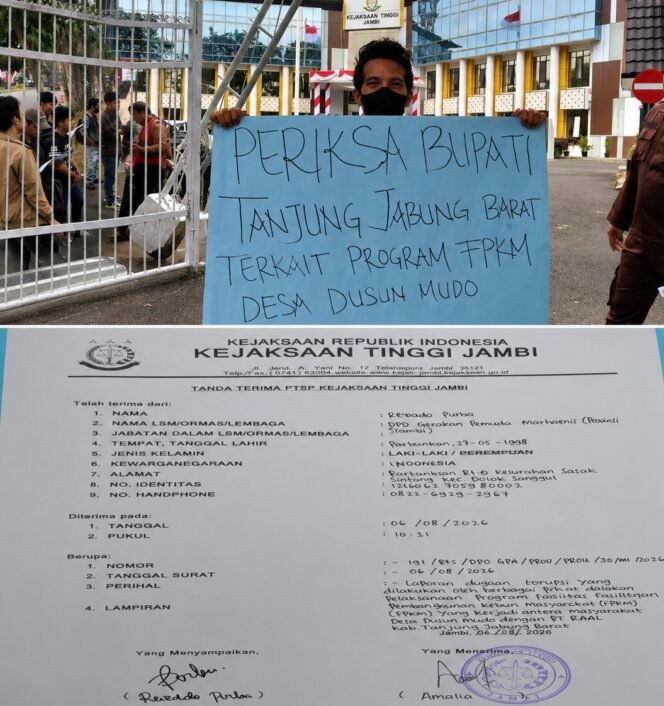 KEJAKSAAN TINGGI
JAMBI
PERIKSA BUPATI
TANJUNG JABUNG BARAT
TERKAIT PROGRAM FPKM
DESA DUSUN MUDO
KEJAKSAAN REPUBLIK INDONESIA
KEJAKSAAN TINGGI JAMBI
Jl. Jend. A. Yani No. 12 Telanaipura Jambi 36121
Telp./Fax. (0741) 63004,website:www.kejati-jambi.kejaksaan.go.id
TANDA TERIMA PTSP KEJAKSAAN TINGGI JAMBI
Telah terima dari:
1. NAMA : Revado Purba
2. NAMA LSM/ORMAS/LEMBAGA : DPD Gerakan Pemuda Marhaenis (Provinsi
3. JABATAN DALAM LSM/ORMAS/LEMBAGA : Jrambi)
4. TEMPAT, TANGGAL LAHIR : Parbunkan, 27-05-1998
5. JENIS KELAMIN : LAKI-LAKI / PEREMPUAN
6. KEWARGANEGARAAN : INDONESIA
7. ALAMAT : Rartanbsan Rt.6 Kelurahan Sasak
Sintang Kec. Dolok Sanggul
8. NO. IDENTITAS : 1216062 7059 80002
9. NO. HANDPHONE : 0822-6929-2967
Diterima pada:
1. TANGGAL : 06 /08 /2026
2. PUKUL : 10:31
Berupa:
1. NOMOR : - 191 /Bts /DPO GPA /PROV /
2. TANGGAL SURAT : - 06 /08 /2026
3. PERIHAL : - Laporan dugaan torupsi Yang
dilakukan oleh berbagai Prhat dalakan
Pelaksanaan Program fasiitas Fasilitnan
Pembangunan Kebun Masyarckat (FPKM)
4. LAMPIRAN (FPkm) Yang kerjadi antera masyarakat
Desa Dusun Mudo dengan PT RAAL
Kab. Tanjung Jabung Barat
Jambi, 06 /08/ 2026
Yang Menyampaikan, Yang Menerima,
( Reveddo Purba ) ( Amalia )